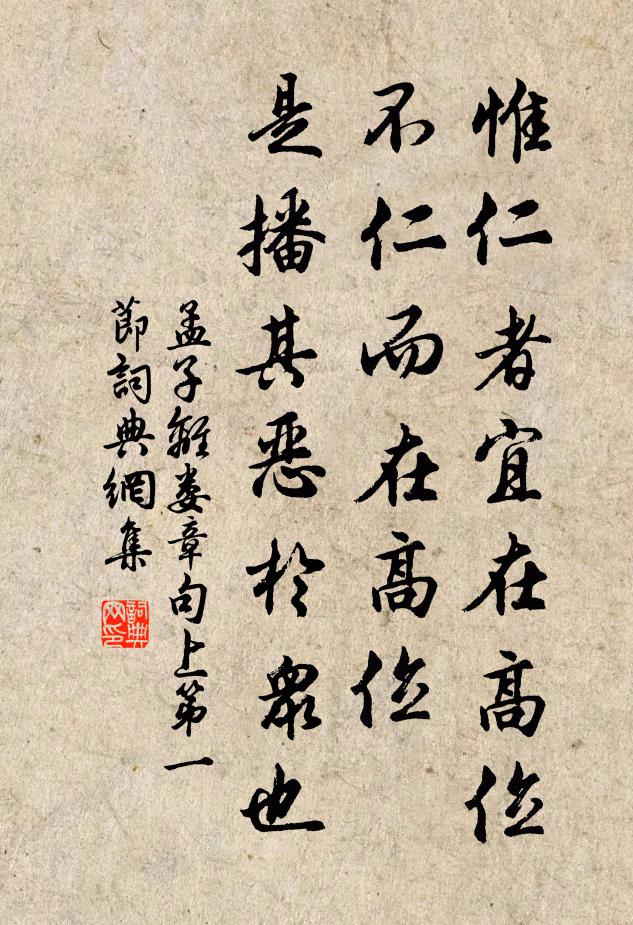 惟仁者宜在高位
不仁而在高位
是播其惡於眾也
孟子離婁章句上第一
節詞典網集
詞典网印